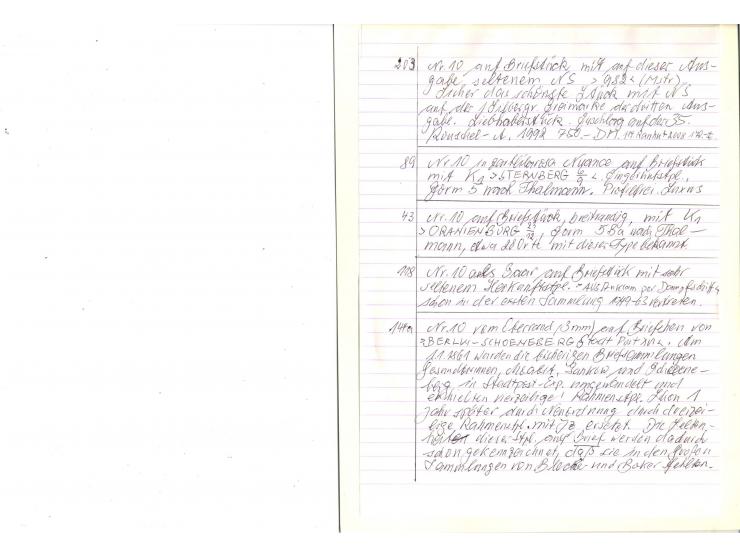 203 Nr. 10 auf Briefstück mit auf dieser Aus-
gabe seltenem NS > 982 < (Mstr)
Sicher das schönste Stück mit NS
auf der Freimarke der dritten Aus-
gabe. Liebhaberstück. Zuschlag auf der 35.
Auktion 1992 750.- DM.
89 Nr 10 in Nuance auf Briefstück
mit K1 > STERNBERG 6/9 < Fingerhutstpl.
Form 5 nach Thalmann. Luxus
43 Nr. 10 auf Briefstück, breitrandig, mit K1
> ORANIENBURG, Form 58a nach Thal-
mann, etwa 28 Orte mit dieser Type bekannt.
118 Nr. 10 als Paar auf Briefstück mit sehr
seltenem Herkunftsstpl. Aus Anclam per Dampfschiff
schon in der ersten Sammlung vertreten.
Nr. 10 vom Oberrand (3 mm) auf Briefchen von
> BERLIN-SCHOENEBERG Am
wurden die bisherigen Briefsammlungen
Gesundbrunnen, Moabit, Pankow und Schöne-
berg in Stadtpost-Exp. umgewandelt und
erhielten vierzeilige! Rahmenstpl. Schon 1
Jahr später durch durch dreizei-
lige Rahmenstpl. mit Jz ersetzt. Die Selten-
heiten dieser Stpl. auf Brief werden dadurch
schon gekennzeichnet, daß sie in den großen
Sammlungen von und Boker fehlten.